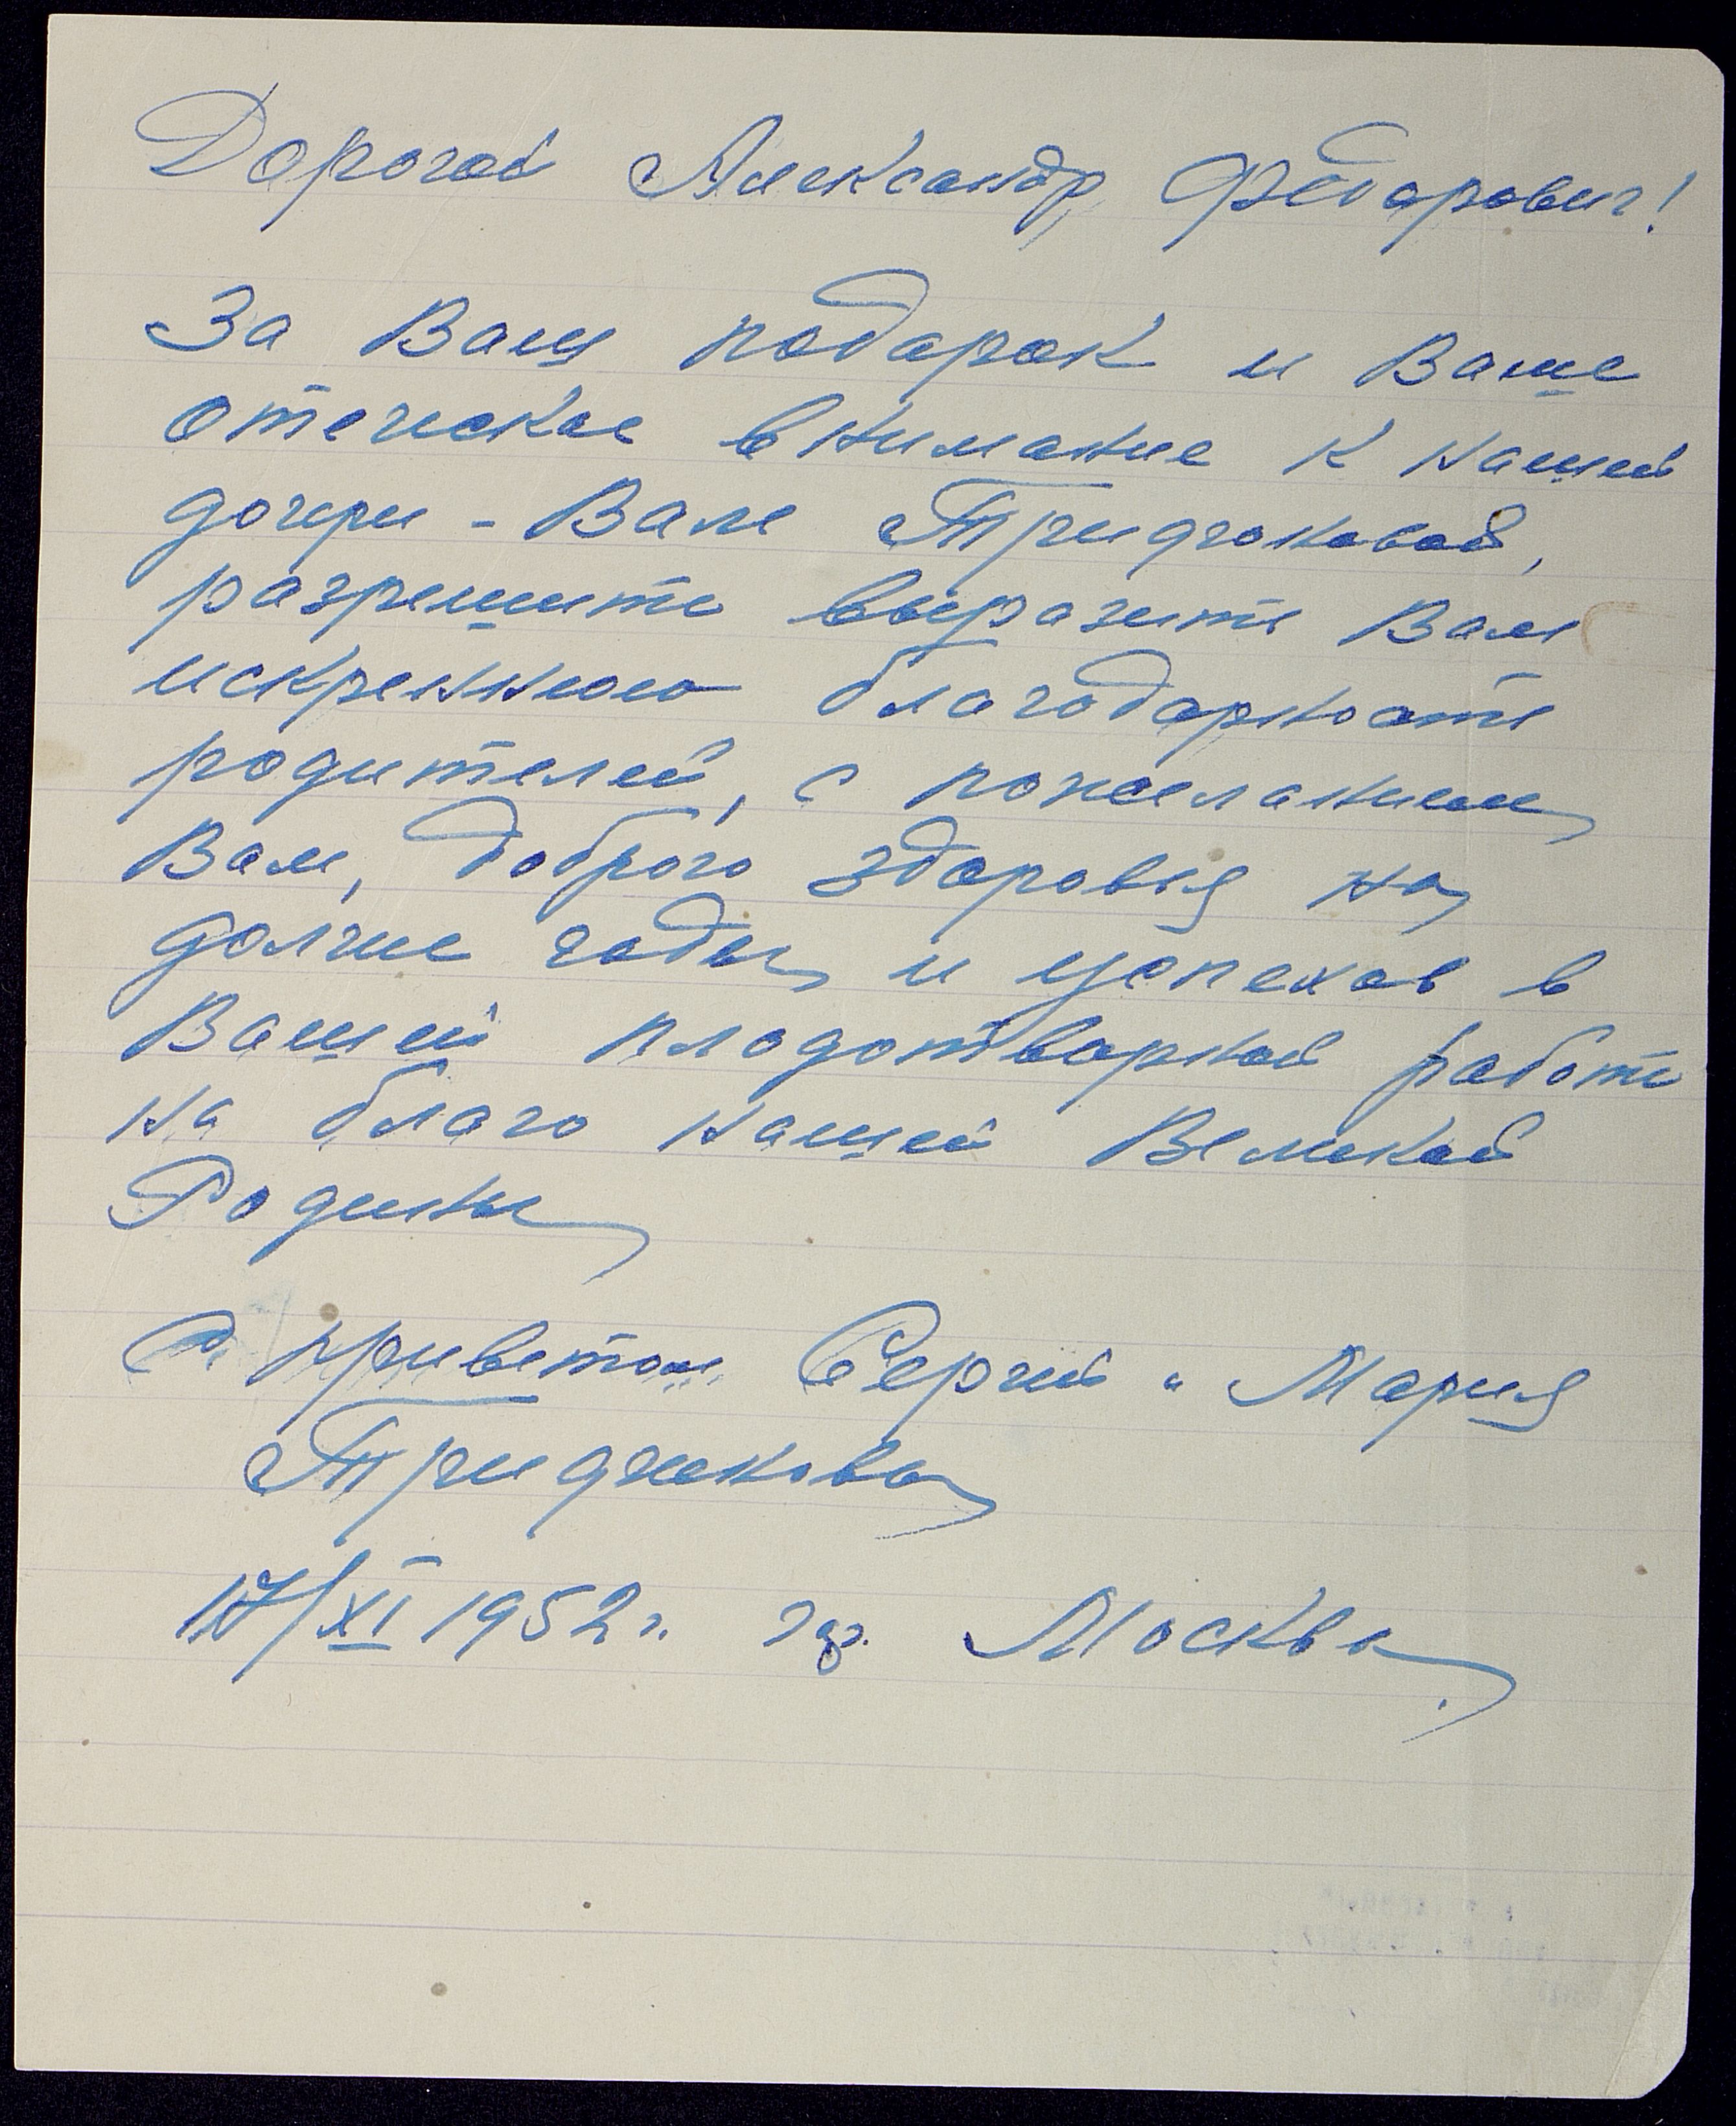 Дорогой Александр Фёдорович!
За Ваш подарок и Ваше
отеческое внимание к нашей
дочери - Вале Тридчиковой,
разрешите выразить Вам
искреннюю благодарность
родителей, с пожеланием
Вам, доброго здоровья на
долгие годы и успехов в
Вашей плодотворной работе
на благо нашей Великой
Родины
С приветом Сергей и Мария
Тридчиковы
17/XI 1952 г. гор. Москва.